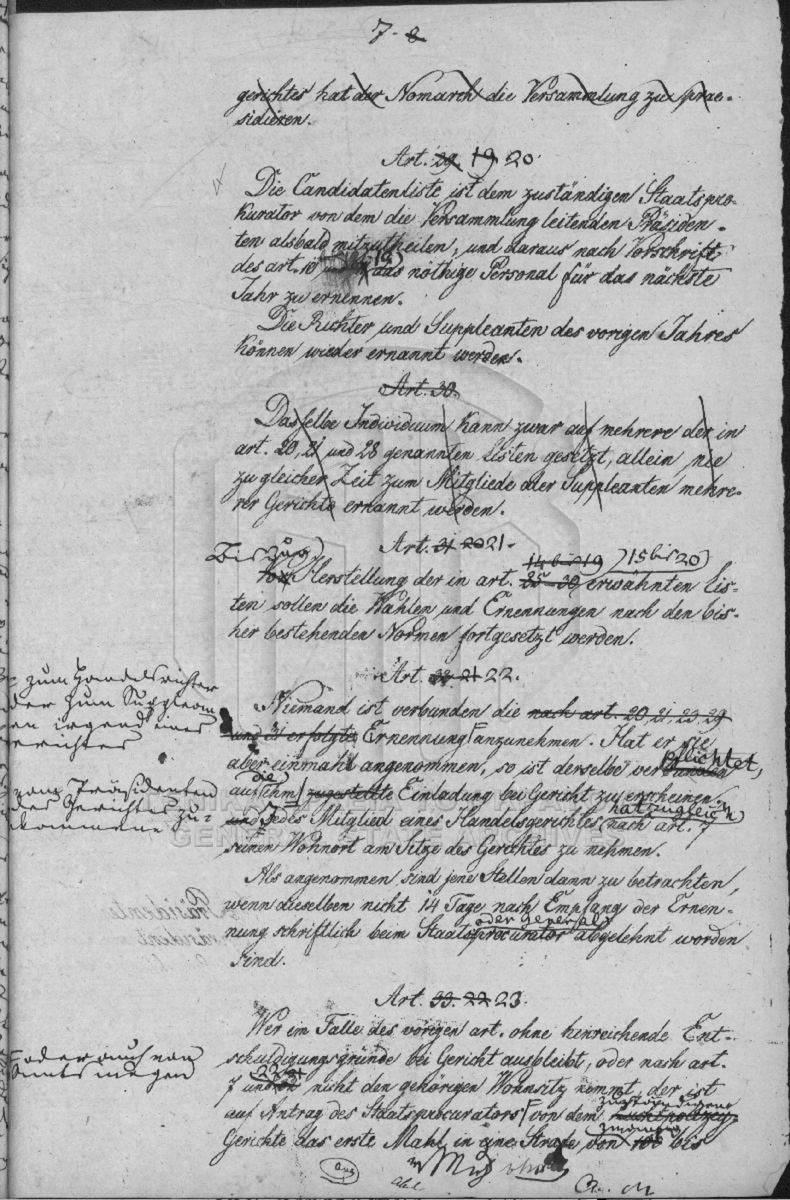 7. 8
gerichtes hat der Nomarch die Versammlung zu prae-
sidieren.
Art. 29. 19 20.
Die Candidatenliste ist dem zuständigen Staatspro-
kurator von dem die Versammlung leitenden Präsiden-
ten alsbald mitzutheilen, und daraus nach Vorschrift
des art. 10 und 19) das nöthige Personal für das nächste
Jahr zu ernennen.
Die Richter und Suppleanten des vorigen Jahres
können wieder ernannt werden.
Art. 30.
Dasselbe Individuum kann zwar auf mehrere der in
art. 20, 21 und 28 genannten Listen gesetzt, allein nie
zu gleicher Zeit zum Mitgliede oder Suppleanten mehre-
rer Gerichte ernannt werden.
Art. 31 20 21.
Bis zur) 14 bis 19 )15 bis 20)
Vor Herstellung der in art. 25-30 erwähnten Lis-
ten sollen die Wahlen und Ernennungen nach den bis-
her bestehenden Normen fortgesetzt werden.
Art. 32. 21 22.
zum Handelsrichter
oder zum Supplean
en irgend eines
Gerichtes
Niemand ist verbunden die nach art. 20, 21, 23, 29
und 31 erfolgte Ernennung anzunehmen. Hat er sie
aber einmahl angenommen, so ist derselbe verbunden pflichtet,
vom Präsidenten
des Gerichtes zu-
kommene
auf die ihm zugestellte Einladung bei Gericht zu erscheinen
und Jedes Mitglied eines Handelsgerichtes (nach art. 7 hat zugleich
seinen Wohnort am Sitze des Gerichtes zu nehmen.
Als angenommen sind jene Stellen dann zu betrachten,
wenn dieselben nicht 14 Tage nach Empfang der Ernen-
nung schriftlich beim Staatsprocurator oder General abgelehnt worden
sind.
Art. 33. 22 23.
Wer im Falle des vorigen art. ohne hinreichende Ent-
schuldigungsgründe bei Gericht ausbleibt, oder nach art.
oder auch von
Amts wegen
7 und 22 nicht den gehörigen Wohnsitz nimmt, der ist
auf Antrag des Staatsprocurators von dem zuständigen Zuchtpolizey-
Gerichte das erste Mahl in eine Strafe von 100 bis